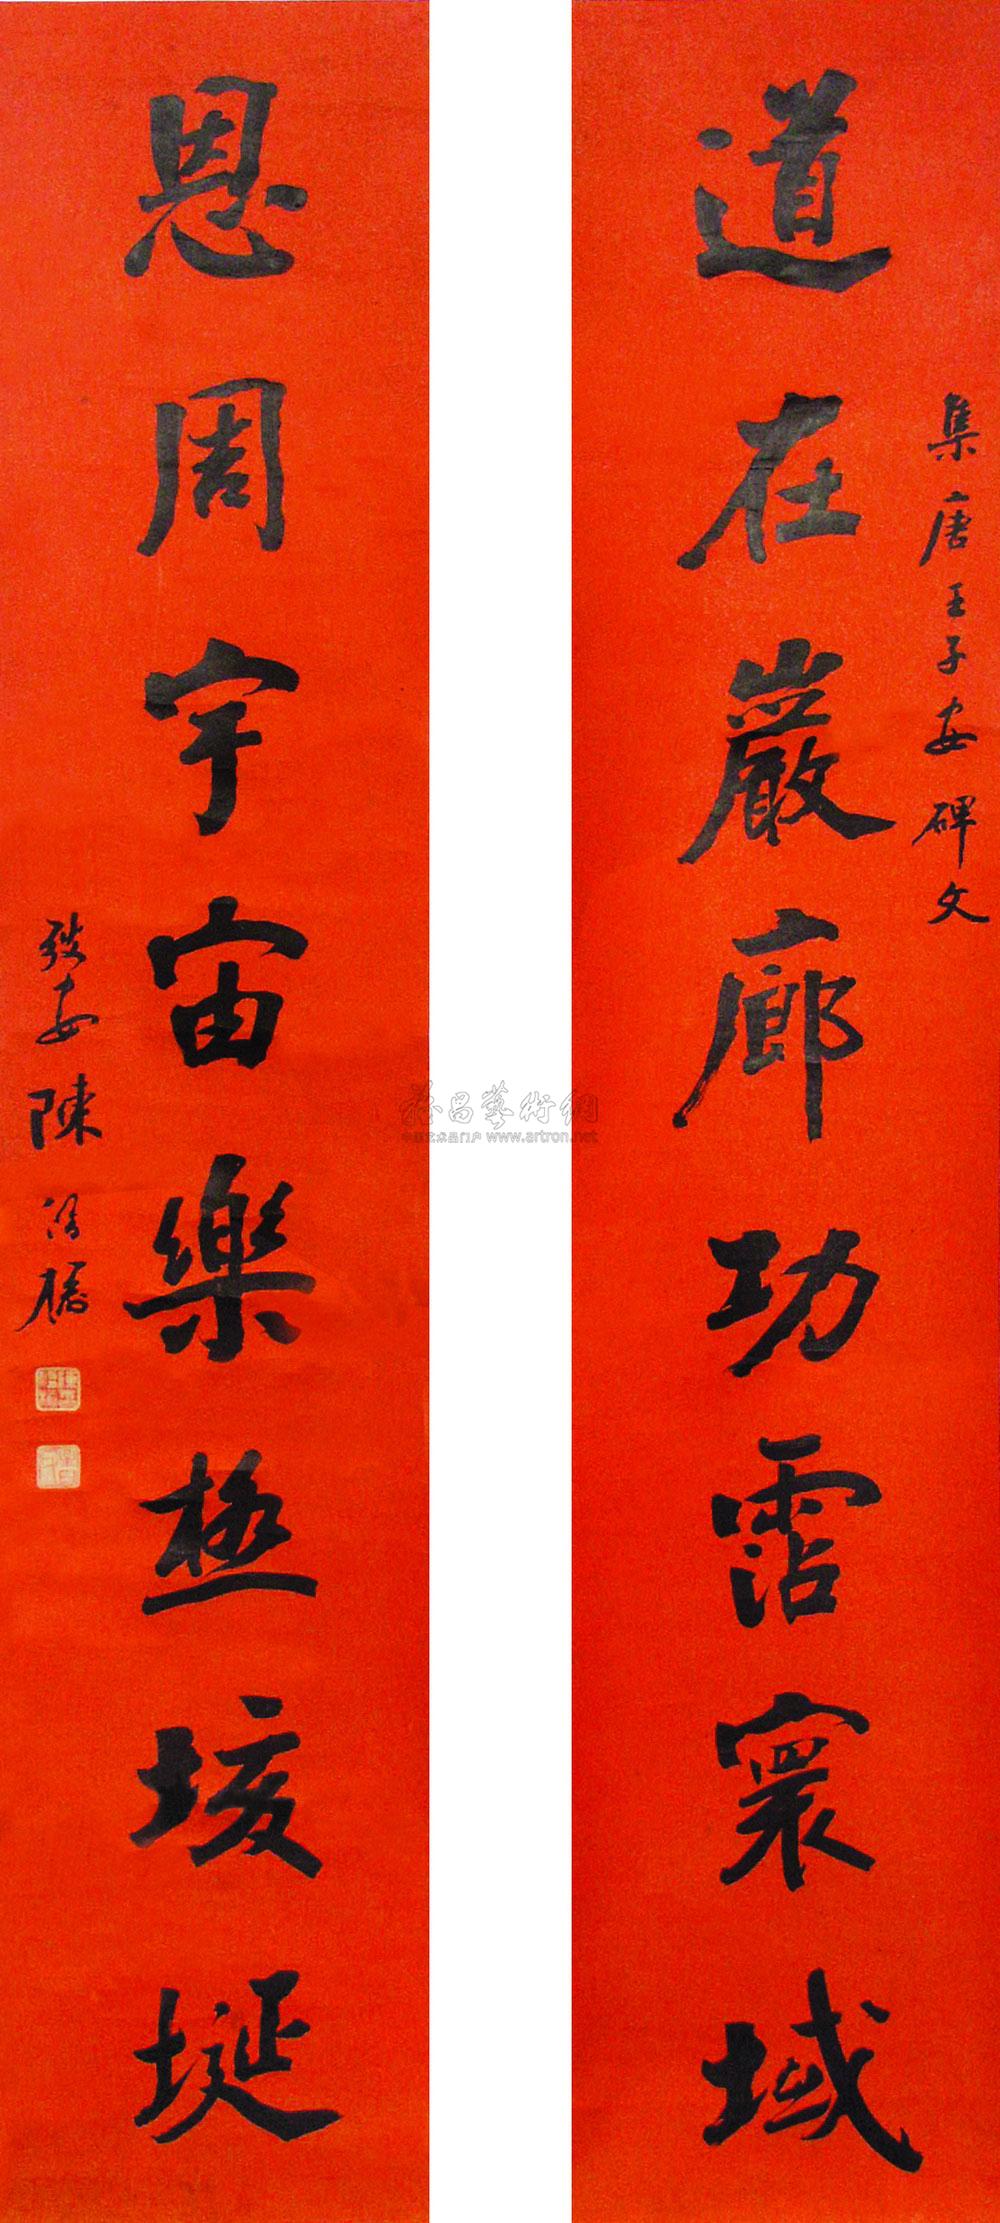 道在巖廊功霑寰域
集唐王子安碑文
恩周宇宙樂極垓埏
弢安陳
雅昌藝術網
中国艺术品门户 www.artron.net